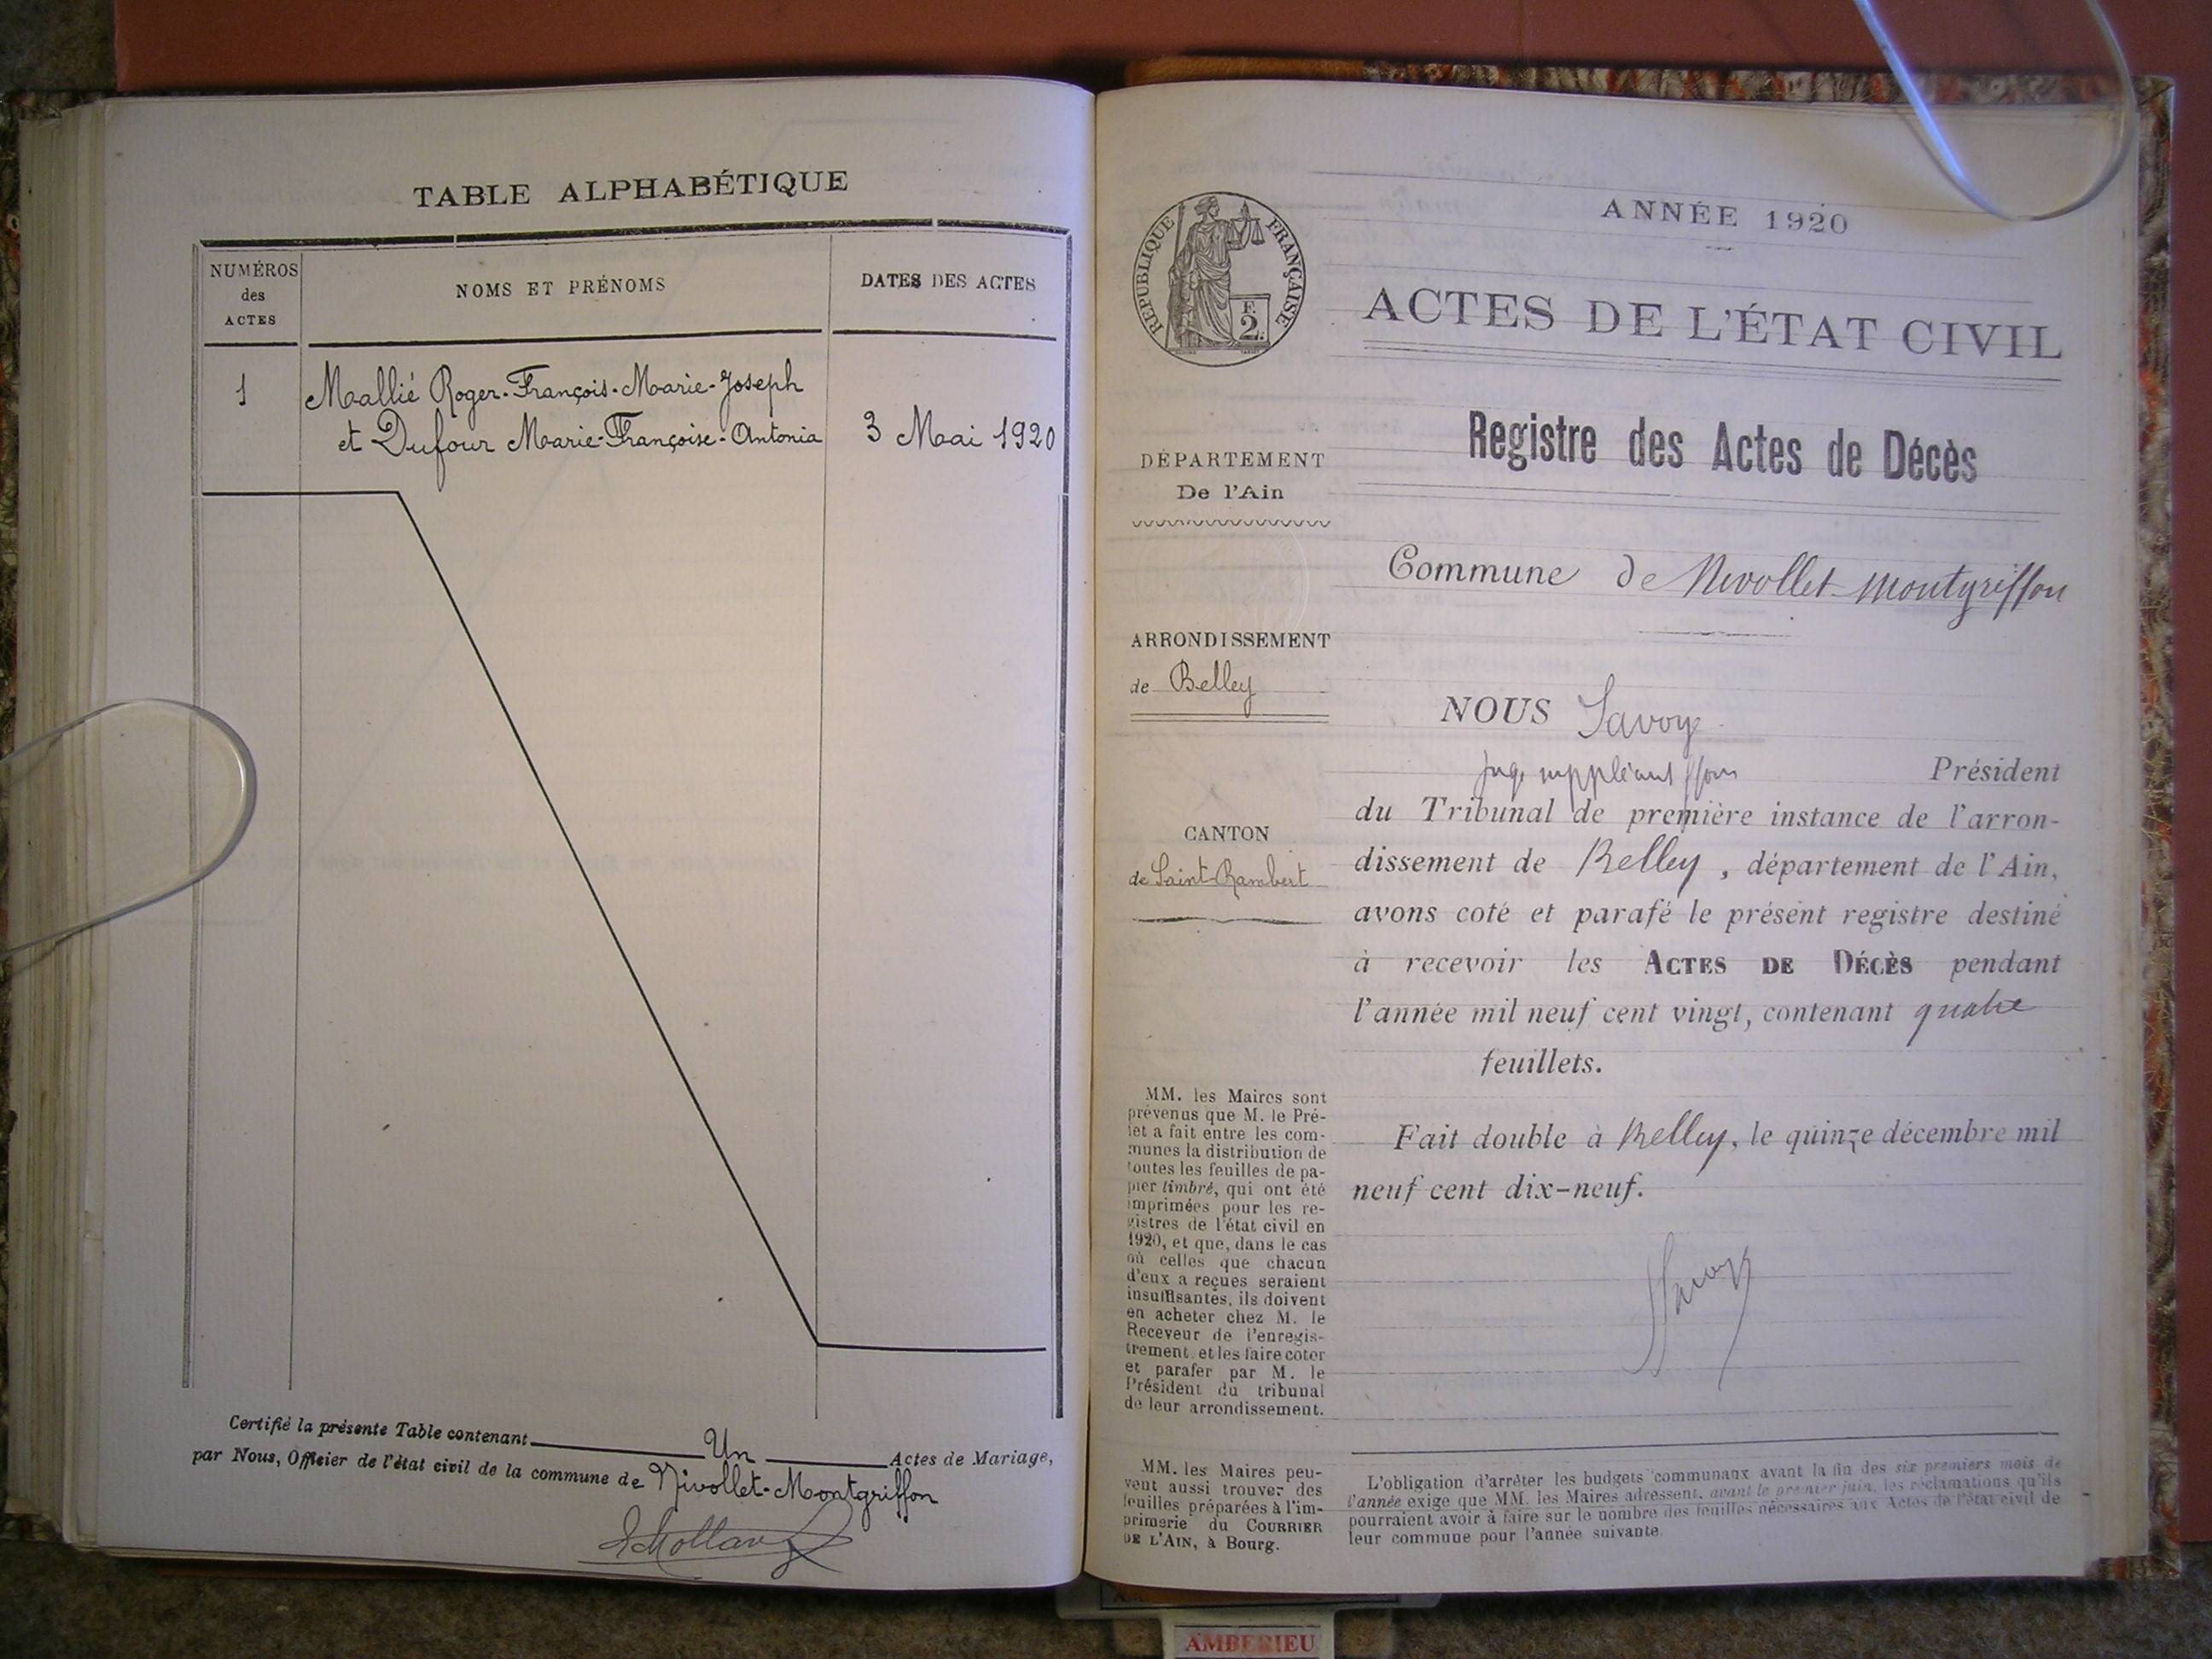 TABLE ALPHABÉTIQUE
NUMÉROS
des
ACTES
NOMS ET PRÉNOMS
DATES DES ACTES
1
Mallié Roger-François-Marie-Joseph
et Dufour Marie-Françoise-Antonia
3 Mai 1920
Certifié la présente Table contenant Un Actes de Mariage,
par Nous, Officier de l'état civil de la commune de Nivollet-Montgriffon
RÉPUBLIQUE FRANÇAISE
F.
2.
DÉPARTEMENT
De l'Ain
ARRONDISSEMENT
de Belley
CANTON
de Saint-Rambert
MM. les Maires sont
prévenus que M. le Pré-
fet a fait entre les com-
munes la distribution de
toutes les feuilles de pa-
pier timbré, qui ont été
imprimées pour les re-
gistres de l'état civil en
1920, et que, dans le cas
où celles que chacun
d'eux a reçues seraient
insuffisantes, ils doivent
en acheter chez M. le
Receveur de l'enregis-
trement, et les faire coter
et parafer par M. le
Président du tribunal
de leur arrondissement.
MM. les Maires peu-
vent aussi trouver des
feuilles préparées à l'im-
primerie du COURRIER
DE L'AIN, à Bourg.
ANNÉE 1920
ACTES DE L'ÉTAT CIVIL
Registre des Actes de Décès
Commune de Nivollet-Montgriffon
NOUS Savoye
Juge suppléant Président
du Tribunal de première instance de l'arron-
dissement de Belley, département de l'Ain,
avons coté et parafé le présent registre destiné
à recevoir les ACTES DE DÉCÈS pendant
l'année mil neuf cent vingt, contenant quatre
feuillets.
Fait double à Belley, le quinze décembre mil
neuf cent dix-neuf.
L'obligation d'arrêter les budgets communaux avant la fin des six premiers mois de
l'année exige que MM. les Maires adressent, avant le premier juin, les réclamations qu'ils
pourraient avoir à faire sur le nombre des feuilles nécessaires aux Actes de l'état civil de
leur commune pour l'année suivante.
AMBERIEU